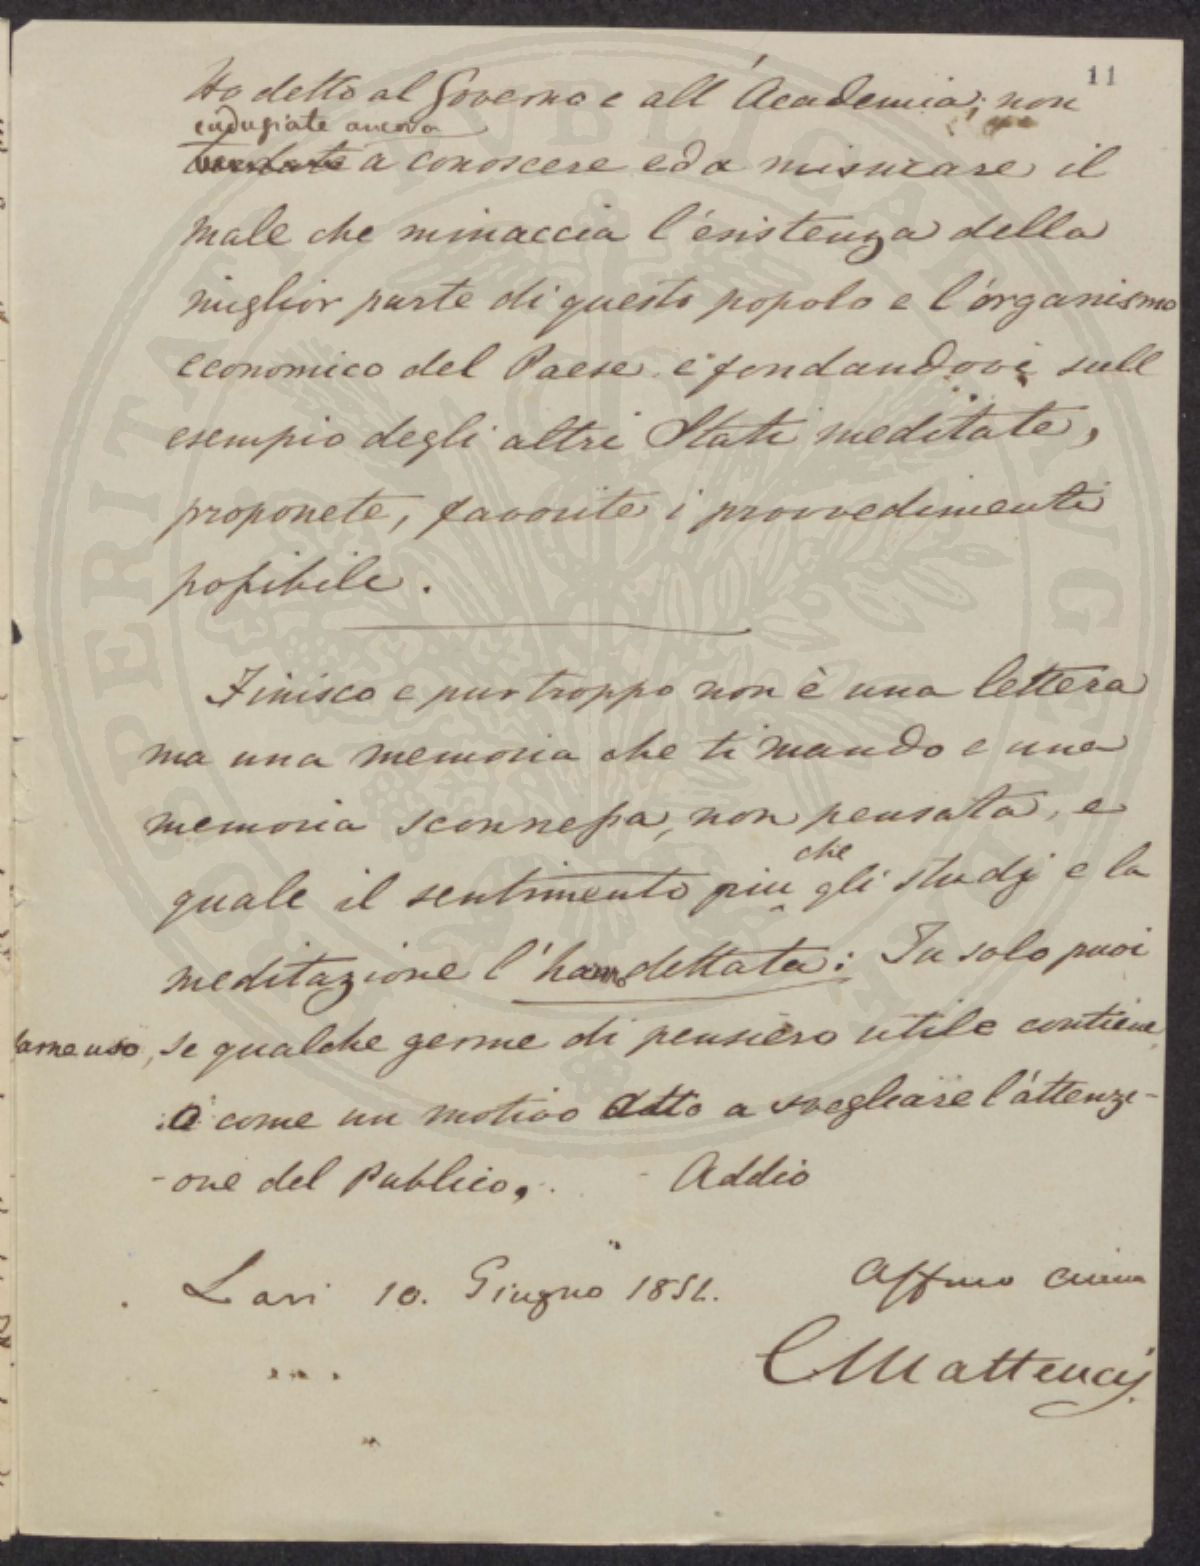 11
Ho detto al Governo e all'Academia; non
indugiate ancora
tardate a conoscere ed a misurare il
male che minaccia l'esistenza della
miglior parte di questo popolo e l'organismo
economico del Paese e fondandovi sull
esempio degli altri Stati meditate,
proponete, favorite i provvedimenti
possibile.
Finisco e pur troppo non è una lettera
ma una memoria che ti mando e una
memoria sconnessa, non pensata, e
che
quale il sentimento piu gli studj e la
meditazione l'hanno dettata: Tu solo puoi
farne uso, se qualche germe di pensiero utile contiene,
o come un motivo atto a svegliare l'attenzi-
-one del Publico. - Addio
Lari 10. Giugno 1852.
Affmo amico
CMatteucij.
PROSPERITATI PUBLICAE AUGENDAE